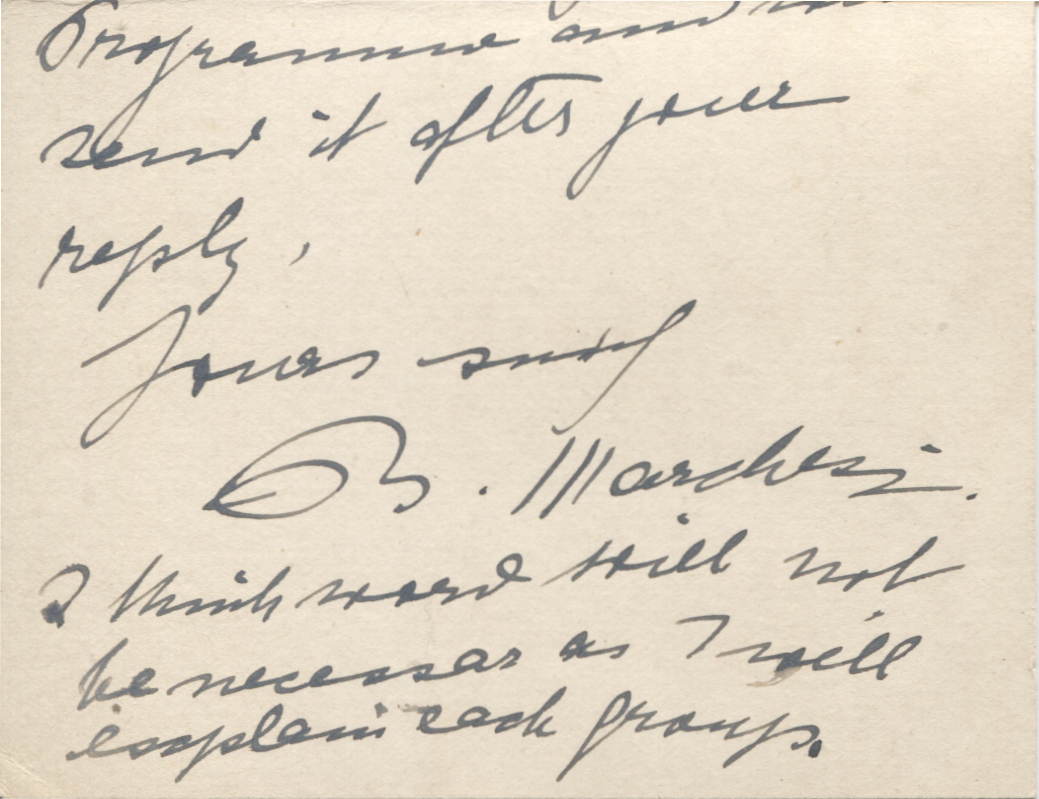 Programme and
send it after your
reply,
Yours
B. Marchesi.
I think word will not
be necessar as I will
explain each group.